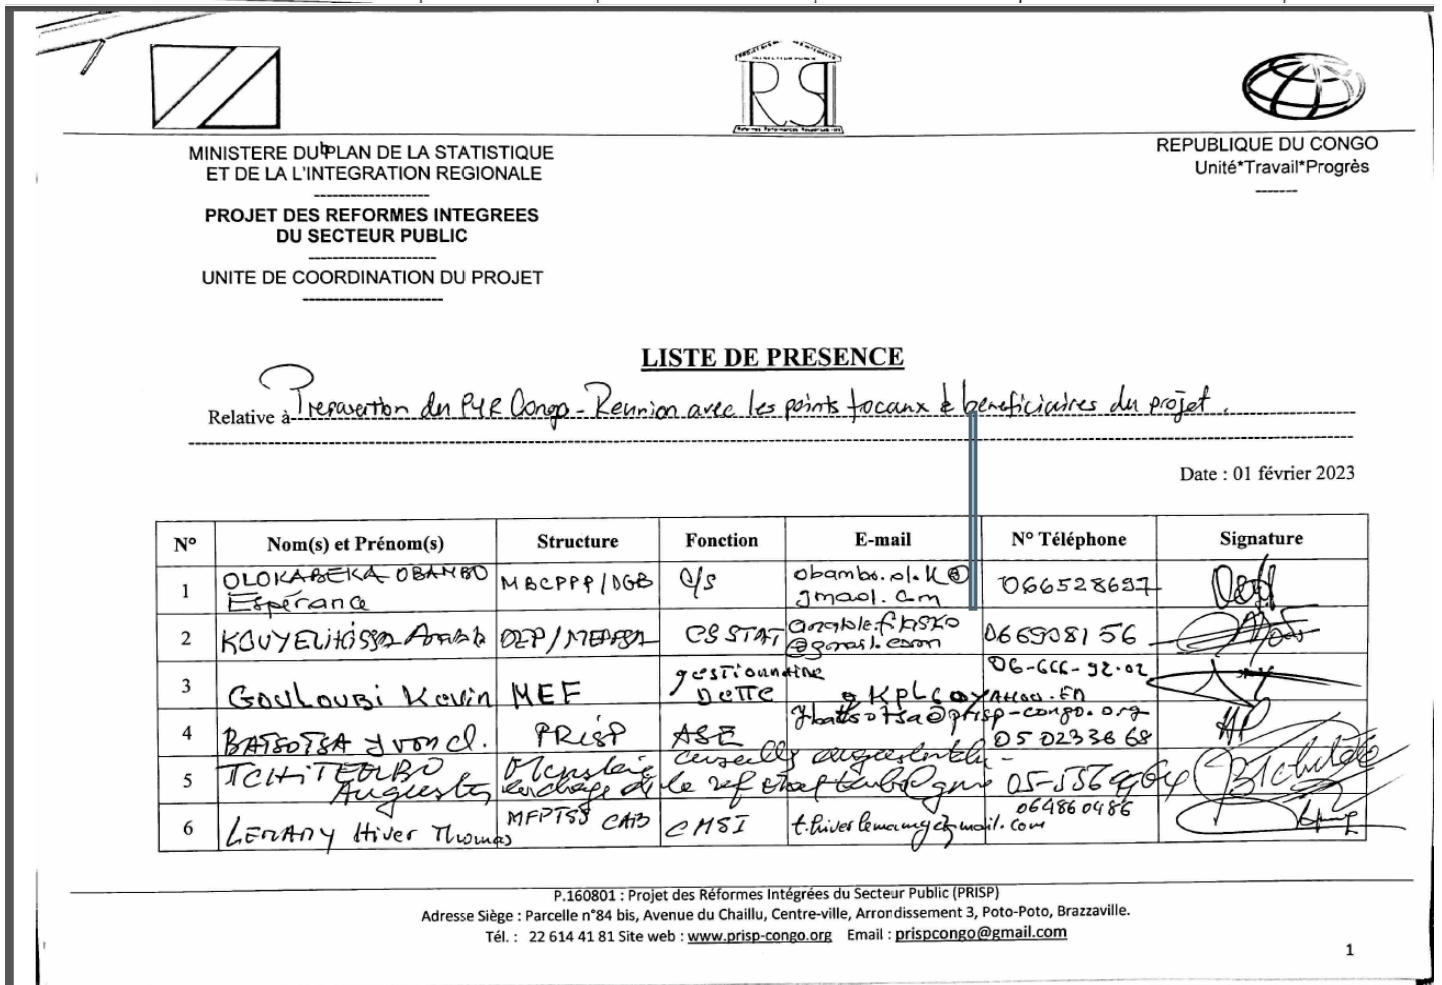 MINISTERE DU PLAN DE LA STATISTIQUE
ET DE LA L'INTEGRATION REGIONALE
--------------------
PROJET DES REFORMES INTEGREES
DU SECTEUR PUBLIC
----------------------
UNITE DE COORDINATION DU PROJET
------------------------
RS
REPUBLIQUE DU CONGO
Unité*Travail*Progrès
-------
LISTE DE PRESENCE
Relative à Preparation du PYR Congo - Reunion avec les points focaux & beneficiaires du projet.
Date : 01 février 2023
N° Nom(s) et Prénom(s) Structure Fonction E-mail N° Téléphone Signature
1 OLOKABEKA OBAMBO Espérance MBCPPP/DGB C/S obambo.ol.K@ gmaol.cm 066528697
2 DEP/ CS STAT @gmail.com 066908156
3 GOULOUBI Kevin MEF gestionnaire DETTE 06-666-92-02
4 BATSOTSA Yvon cl. PRISP ASE ybatsotsa@prisp-congo.org 050233668
5 TCHITEMBO Auguste
6 LEMANY Hiver Thomas MFPTSS CAB CMSI 064860486
P.160801 : Projet des Réformes Intégrées du Secteur Public (PRISP)
Adresse Siège : Parcelle n°84 bis, Avenue du Chaillu, Centre-ville, Arrondissement 3, Poto-Poto, Brazzaville.
Tél. : 22 614 41 81 Site web : www.prisp-congo.org Email : prispcongo@gmail.com
1